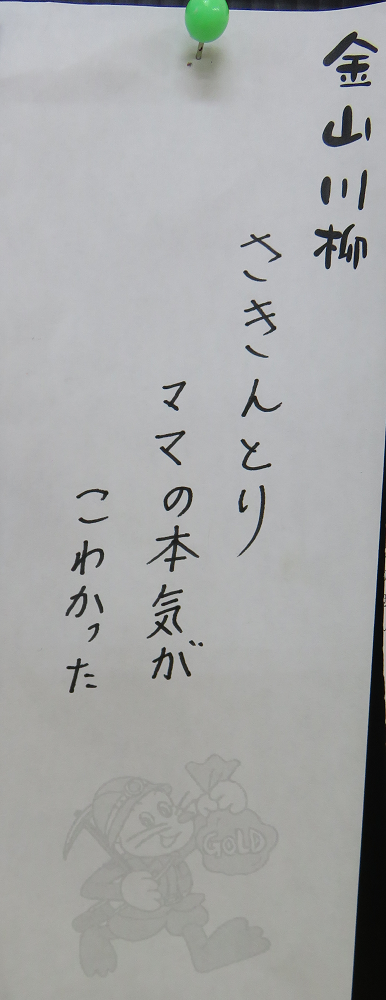 金山川柳
さきんとり
ママの本気が
こわかった
GOLD